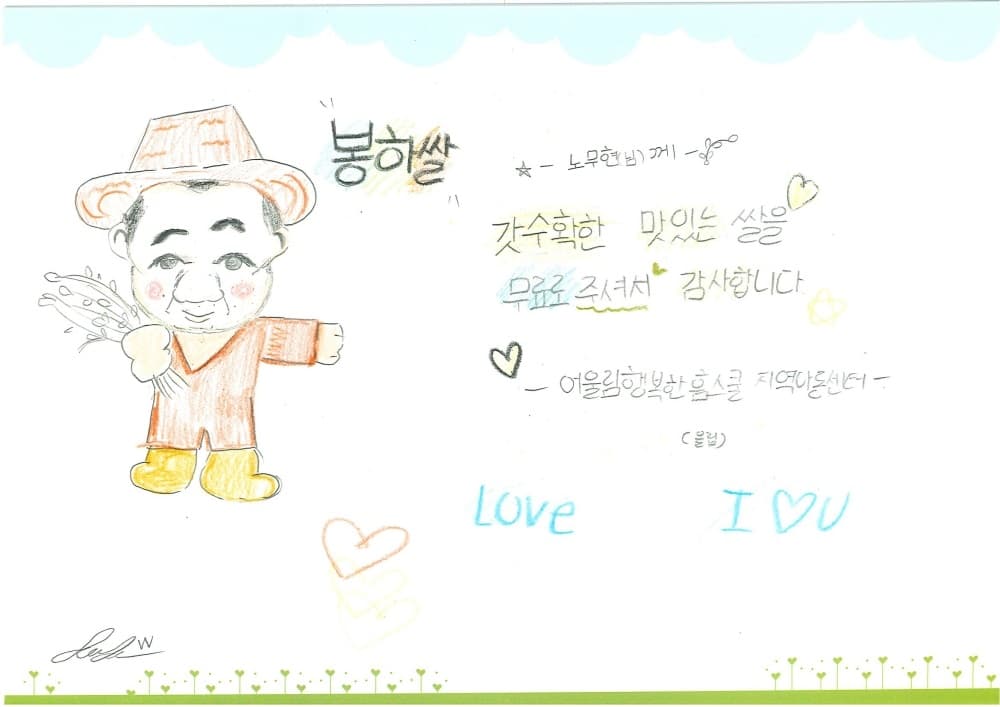 봉하쌀
- 노무현(님)께 -
갓수확한 맛있는 쌀을
무료로 주셔서 감사합니다
- 어울림행복한홈스쿨 지역아동센터 -
Love I ♡ U